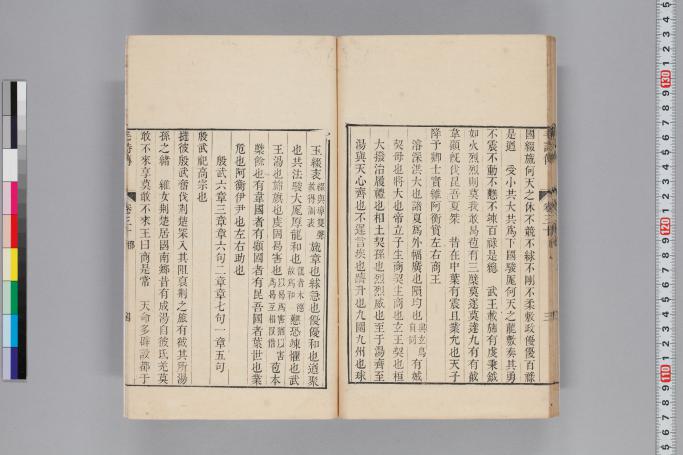 國綴旒何天之休不競不絿不剛不柔敷政優優百祿
是遒　受小共大共爲下國駿厖何天之龍敷奏其勇
不震不動不戁不竦百祿是總　武王載旆有虔秉鉞
如火烈烈則莫我敢曷苞有三櫱莫遂莫達九有有截
韋顧旣伐昆吾夏桀　昔在中葉有震且業允也天子
降予卿士實維阿衡實左右商王
濬深洪大也諸夏爲外幅廣也隕均也
有娀
契母也將大也帝立子生商契生商也玄王契也桓
大撥治履禮也相土契孫也烈烈威也至于湯齊至
湯與天心齊也不遲言疾也躋升也九圍九州也球
玉綴表
旒章也絿急也優優和也遒聚
也共法駿大厖厚龍和也
戁恐竦懼也武
王湯也旆旗也虔固曷害也
苞本
櫱餘也有韋國者有顧國者有昆吾國者葉世也業
危也阿衡伊尹也左右助也
殷武六章三章章六句二章章七句一章五句
殷武祀高宗也
撻彼殷武奮伐荆楚罙入其阻裒荆之旅有截其所湯
孫之緒　維女荆楚居國南鄉昔有成湯自彼氐羌莫
敢不來享莫敢不來王曰商是常　天命多辟設都于